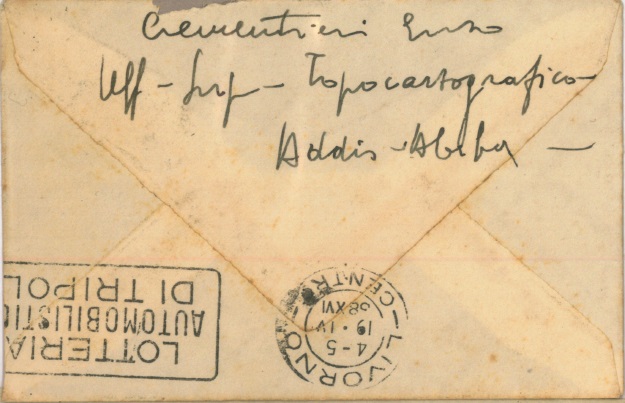 Crementieri Enzo
Uff - Sup - Topocartografico
Addis - Abeba -
LOTTERIA
AUTOMOBILISTIC
DI TRIPOL
LIVORNO
CENTR
4-5
19·IV
38XVI